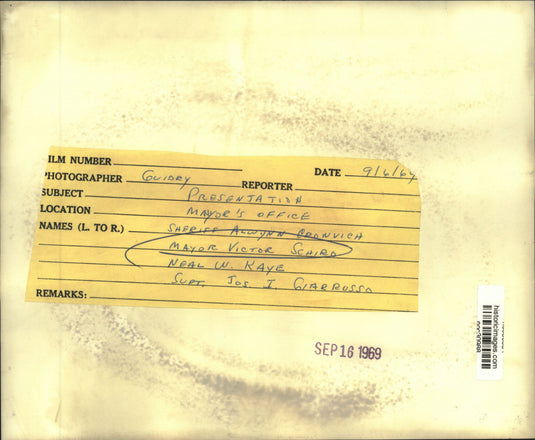 ILM NUMBER
DATE 9/6/67
PHOTOGRAPHER GUIDRY REPORTER
SUBJECT PRESENTATION
LOCATION MAYOR'S OFFICE
NAMES (L. TO R.) SHERIFF ALWYNN CRONVICH
MAYOR VICTOR SCHIRO
NEAL W. KAYE
SUPT. JOS I. GIARRUSSO
REMARKS:
SEP 16 1969
historicimages.com